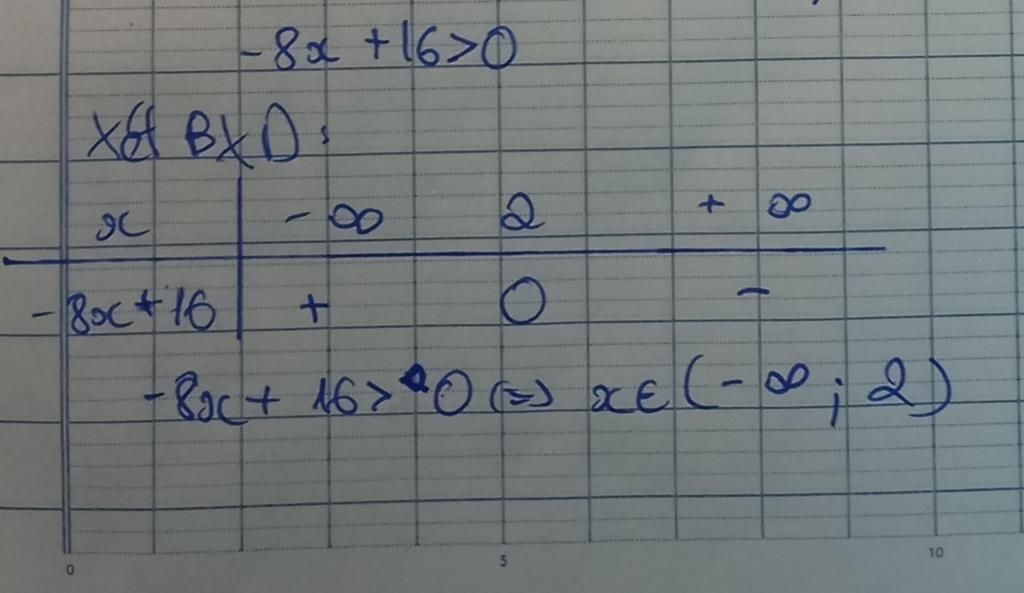 -8x + 16 > 0
Xét BXD :
x - ∞ 2 + ∞
-8x + 16 + 0 -
-8x + 16 > 0 (=) x ∈ (- ∞ ; 2)
0 5 10